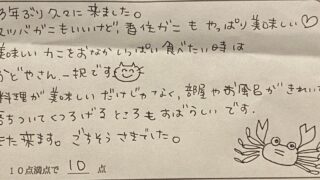 3年ぶり久々に来ました。
マツバガニもいいけど、香住ガニもやっぱり美味しい♡
美味しいカニをおなかいっぱい食べたい時は
かどやさん一択です
料理が美味しいだけじゃなく、部屋やお風呂がきれいで
落ちついてくつろげるところもすばらしいです。
また来ます。ごちそうさまでした。
10点満点で 10 点